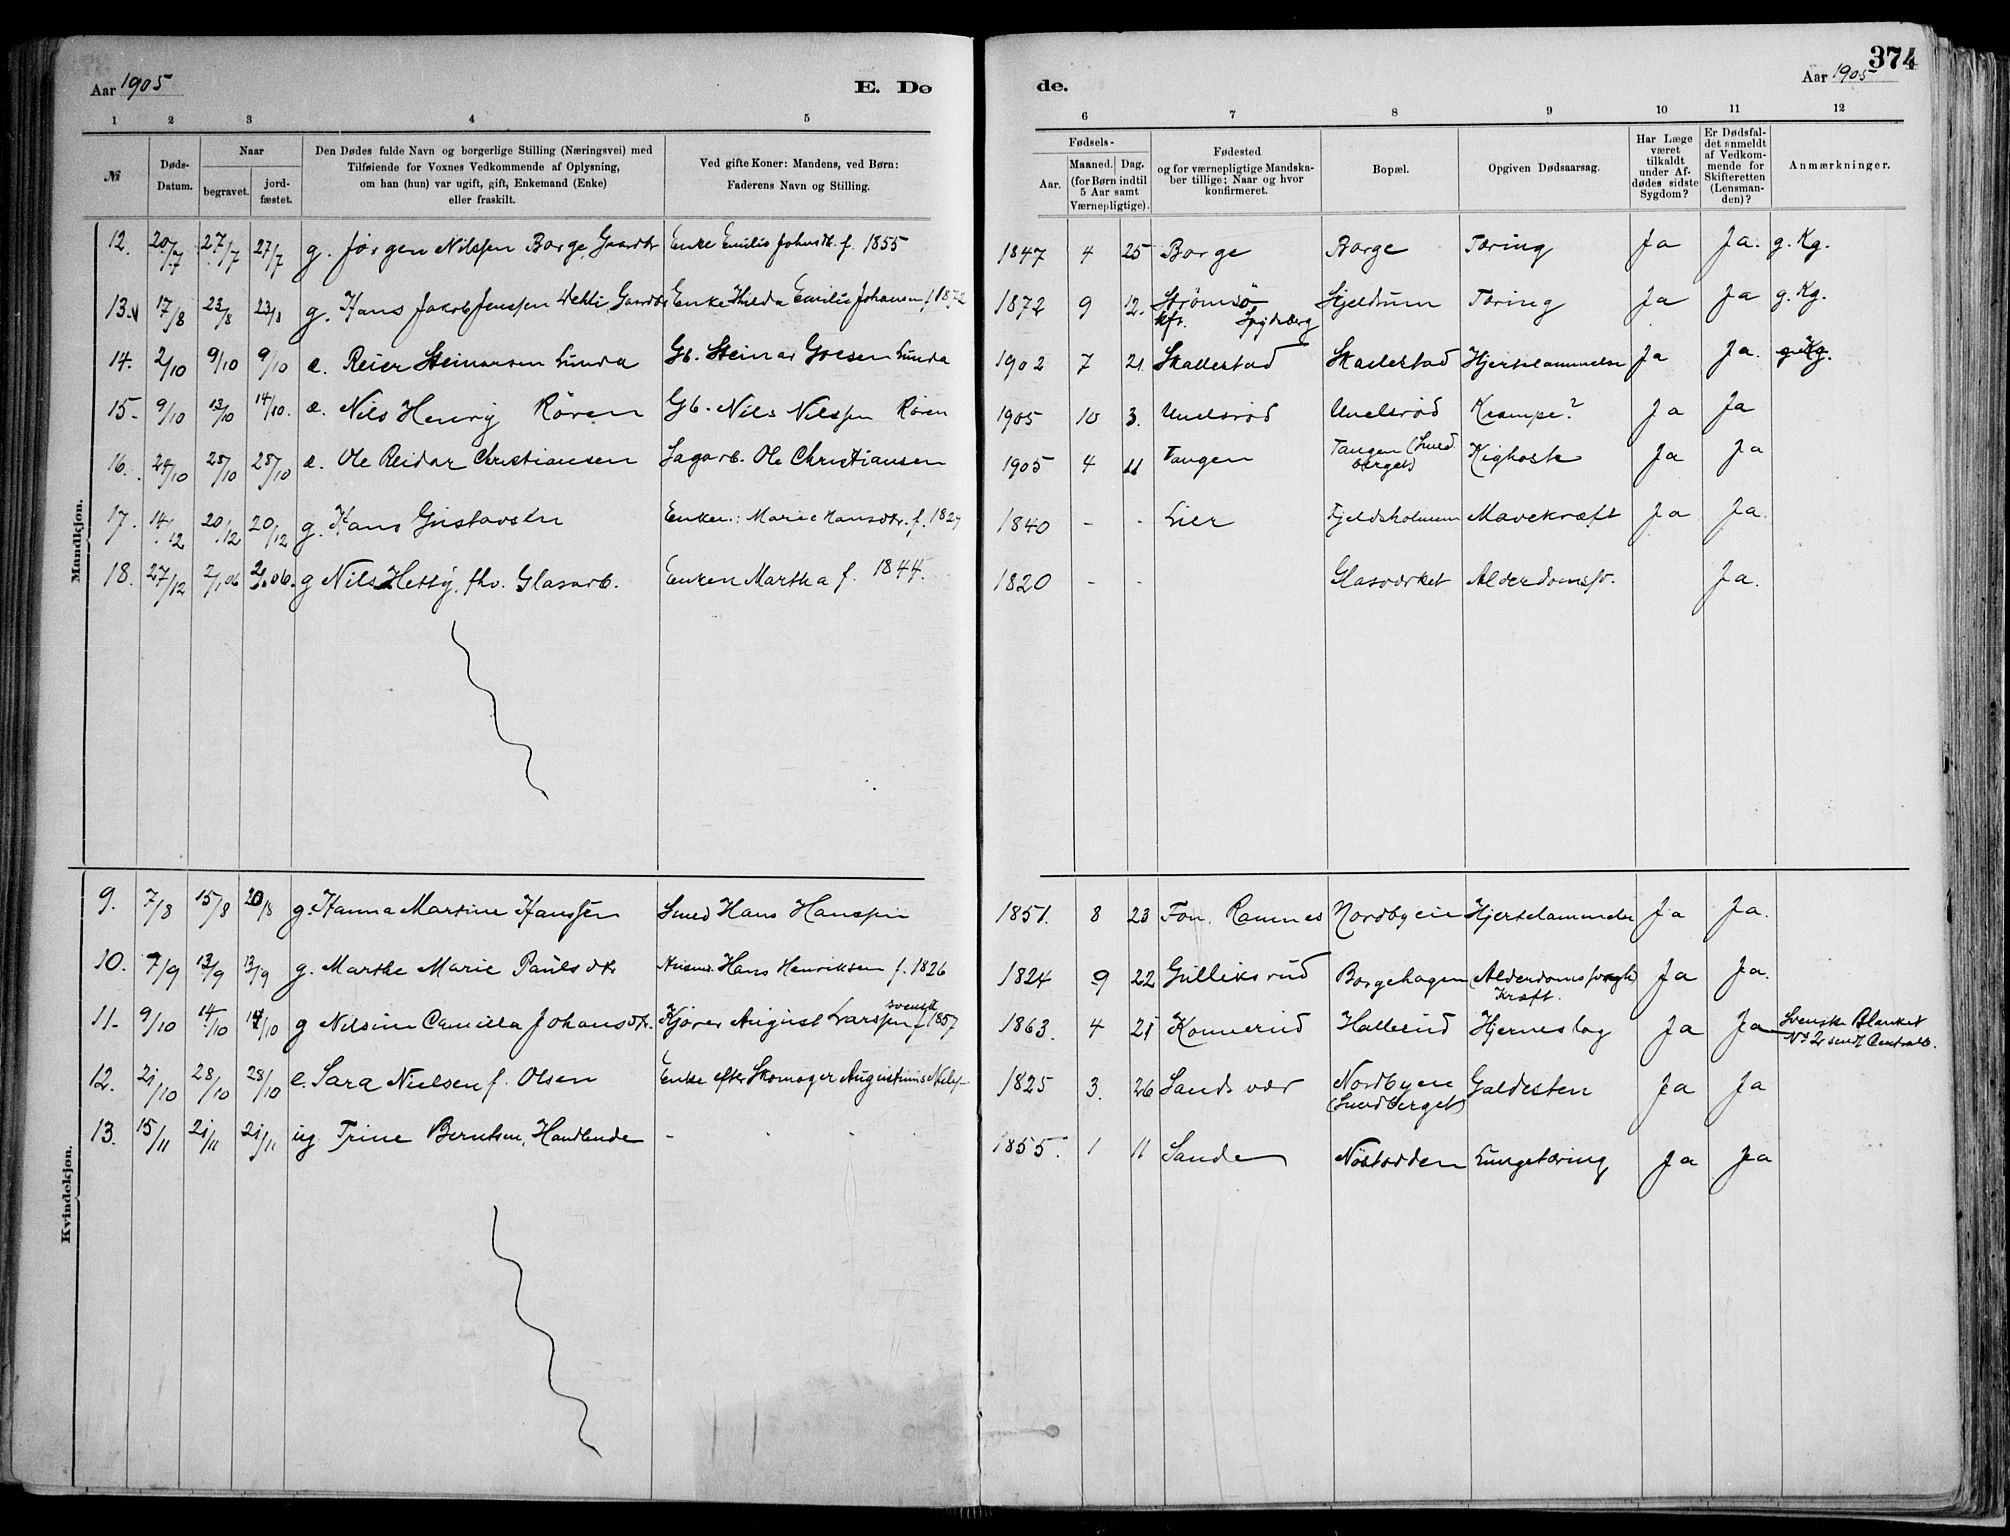 374
Aar 1905 E. Dø de. Aar 1905
1 2 3 4 5 6 7 8 9 10 11 12
№
Døds-
Datum.
Naar
begravet.
jord-
fæstet.
Den Dødes fulde Navn og borgerlige Stilling (Næringsvei) med
Tilføiende for Voxnes Vedkommende af Oplysning,
om han (hun) var ugift, gift, Enkemand (Enke)
eller fraskilt.
Ved gifte Koner: Mandens, ved Børn:
Faderens Navn og Stilling.
Fødsels-
Aar.
Maaned. Dag.
(for Børn indtil
5 Aar samt
Værnepligtige).
Fødested
og for værnepligtige Mandska-
ber tillige: Naar og hvor
konfirmeret.
Bopæl.
Opgiven Dødsaarsag.
Har Læge
været
tilkaldt
under Af-
dødes sidste
Sygdom?
Er Dødsfal-
det anmeldt
af Vedkom-
mende for
Skifteretten
(Lensman-
den)?
Anmærkninger.
Mandkjøn.
12. 20/7 27/7 27/7 g. Jørgen Nilssen Borge, Gaardbr Enke Emilie Johnsdtr. f. 1855 1847 4 25 Borge Borge Tæring Ja Ja. g. Kg.
13. 17/8 23/8 23/8 g. Hans Jakob Jenssen Dehli Gaardbr Enke Hilda Emilie Johansen f 1872 1872 9 12. Strømsø Skjeldrum Tæring Ja Ja g. Kg.
kfr. Spydeberg
14. 2/10 9/10 9/10 e. Reier Steinarsen Lunda Gb. Steinar Lunda 1902 7 21. Skallestad Skallestad Hjertelammelse Ja Ja. g. Kg.
15. 9/10 13/10 14/10. e. Nils Henry Røren Gb. Nils Nilssen Røren 1905 10 3. Krampe? Ja Ja
16. 24/10 28/10 28/10 e. Ole Reidar Christiansen Sagarb. Ole Christiansen 1905 4 11 Tangen Tangen (Smed
berget) Kighoste Ja Ja
17. 14/12 20/12 20/12 g. Hans Gustavsen Enken: Marie Hansdtr. f. 1827 1840 - - Lier Fjeldsholmen Mavekræft Ja Ja.
18. 27/12 2/1 06 2/1 06. g Nils fhv. Glasarb. Enken Martha f. 1844. 1820 - - Glasværket Alderdomssv. Ja.
Kvindekjøn.
9. 7/8 15/8 20/8 g. Hanna Martine Hanssen Smed Hans Hanssen 1851. 8 23 Fon, Ramnes Nordbyen Hjertelammelse Ja Ja.
10. 7/9 13/9 13/9 g. Marthe Marie Paulsdtr Husmd. Hans Henriksen f. 1826 1824 9 22 Gulliksrud Borgehagen Alderdomssvaghed Ja Ja.
Kræft.
11. 9/10 14/10 14/10 g Nilsine Camilla Johansdtr. Kjører August Larssen svensk f 1857 1863. 4 21 Konnerud Hallerud Hjerneslag Ja Ja Svenske Blanket
Nº 2 sendt Centralb.
12. 21/10 28/10 28/10 e. Sara Nielsen f. Olsen Enke efter Skomager Augustinus Niels- 1825 3. 26 Sandsvær Nordbyen
(Smedberget) Galdesten Ja Ja
13. 15/11 21/11 21/11 ug Trine Berntsen, Handlende - 1855. 1 11 Sande Nøstodden Lungetæring Ja Ja